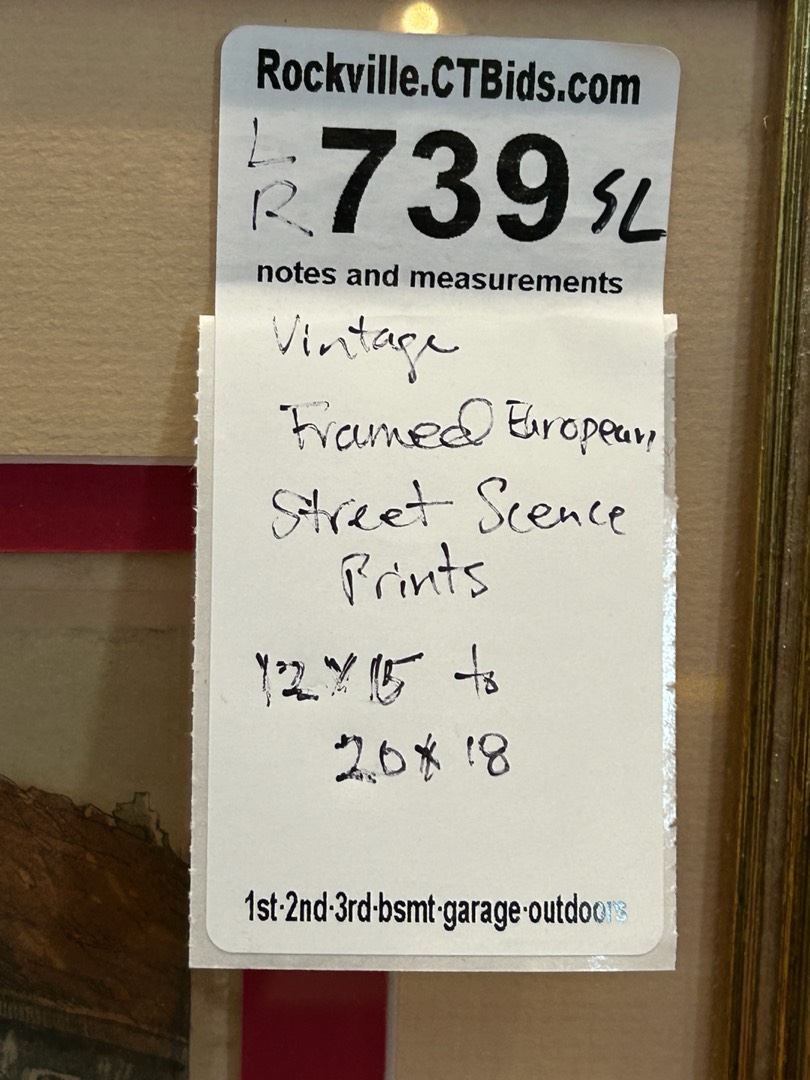 Rockville.CTBids.com
L
R 739 SL
notes and measurements
Vintage
Framed European
Street Scence
Prints
12x15 to
20x18
1st·2nd·3rd·bsmt·garage·outdoors